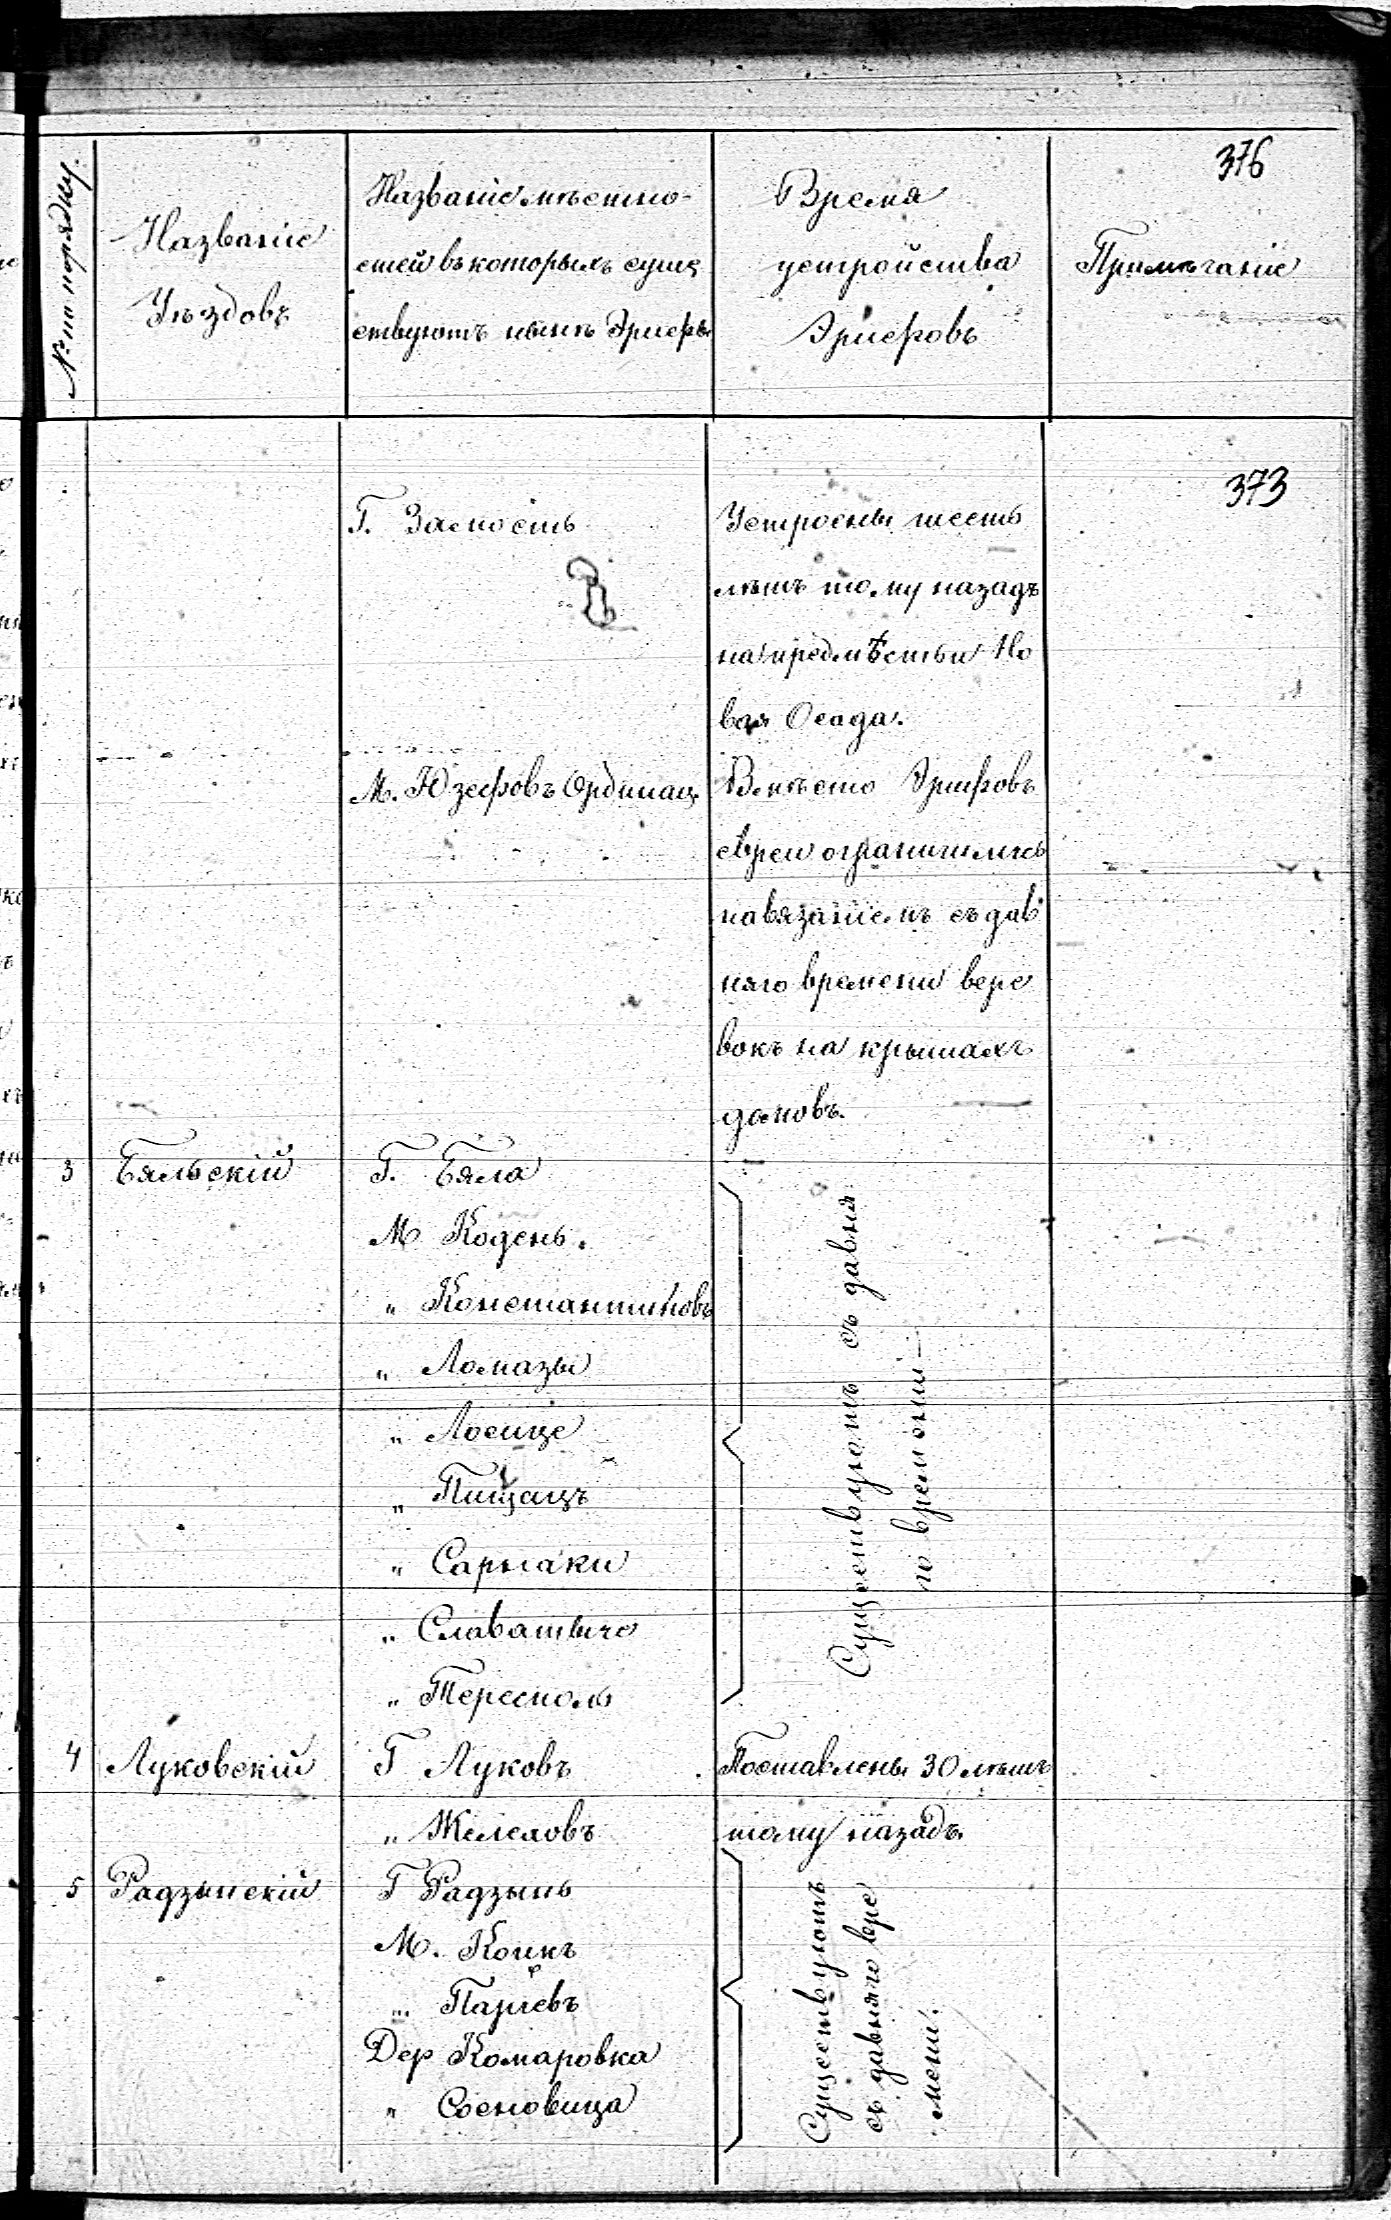 376
№ по порядку.
Названіе
Уѣздовъ
Названіе мѣстно-
стей въ которыхъ суще
ствуютъ нынѣ Эрифы
Время
устройства
Эрифовъ
Примѣчаніе
373
Г. Замость
Устроены шесть
лѣтъ тому назадъ
на предмѣстьи Но
вая Осада.
М. Юзефовъ Ординац.
Вмѣсто Эрифовъ
евреи ограничились
навязаніемъ съ дав
няго времени вере
вокъ на крышахъ
домовъ.
3 Бяльскій Г. Бяла
М Кодень.
„ Константиновъ
„ Ломазы
„ Лосице
„ Пищацъ
„ Сарнаки
„ Славатыче
„ Тересполь
Существуютъ съ давня
го времени
4 Луковскій Г Луковъ Поставлены 30 лѣтъ
„ Желеховъ тому назадъ
5 Радзынскій Г Радзынь
М. Коцкъ
„ Парчевъ
Дер Комаровка
„ Сосновица
Существуютъ
съ давняго вре
мени.